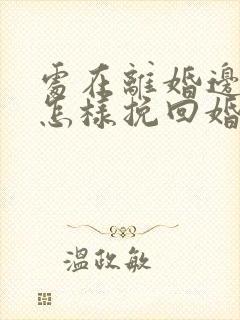 處在離婚邊
怎樣挽回婚
溫政敏